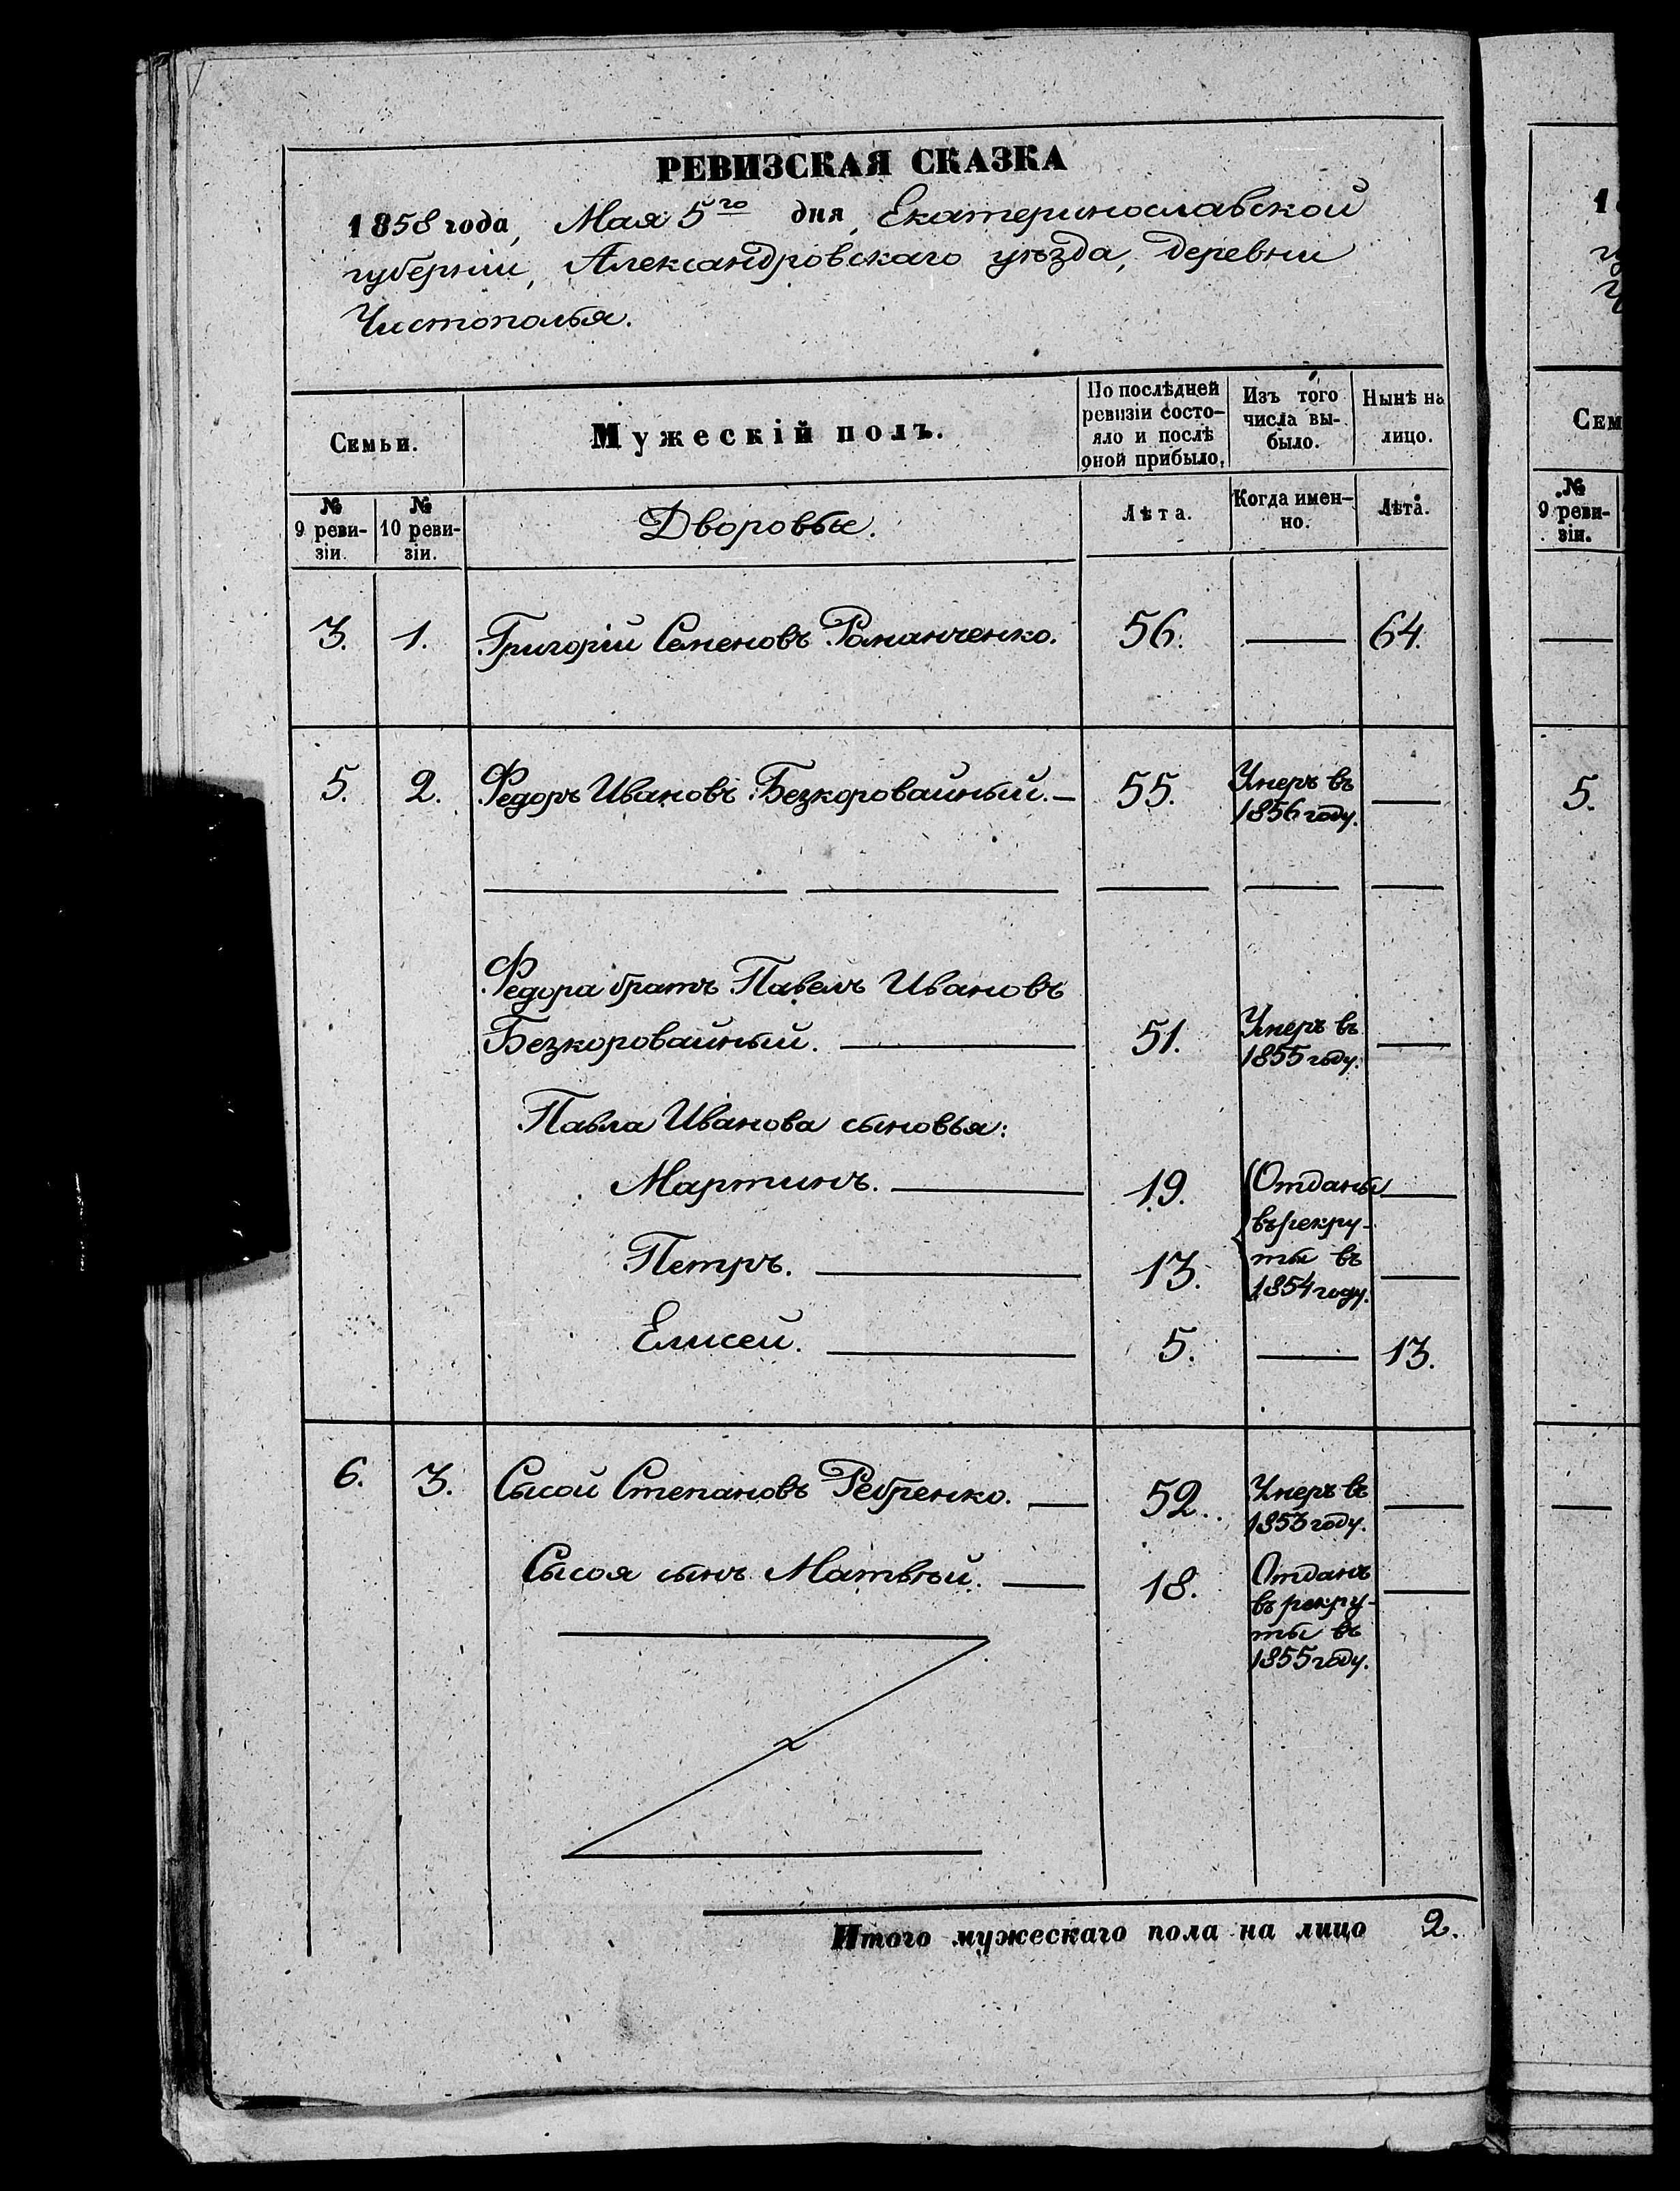 РЕВИЗСКАЯ СКАЗКА
1858 года, Мая 5го дня, Екатеринославской
губерніи, Александровскаго уѣзда, деревни
Чистополья.
Семьи.
Мужескій полъ.
По послѣдней
ревизіи состо-
яло и послѣ
оной прибыло.
Изъ того
числа вы-
было.
Нынѣ на
лицо.
№
9 реви-
зіи.
№
10 реви-
зіи.
Дворовые.
Лѣта.
Когда имен-
но.
Лѣта.
3. 1. Григорій Семеновъ Романченко. 56. 64.
5. 2. Федоръ Ивановъ Безкоровайный. 55. Умеръ въ
1856 году.
Федора братъ Павелъ Ивановъ
Безкоровайный. 51. Умеръ въ
1855 году.
Павла Иванова сыновья:
Мартинъ. 19. Отданы
въ рекру-
Петръ. 13. ты въ
1854 году.
Елисей. 5. 13.
6. 3. Сысой Степановъ Ребренко. 52. Умеръ въ
1853 году.
Сысоя сынъ Матвѣй. 18. Отданъ
въ рекру-
ты въ
1855 году.
Итого мужескаго пола на лицо 2.
1
Сем
№
9 реви-
зіи.
5.